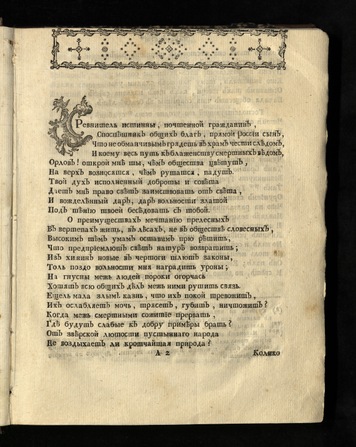 Ревнитель истинны, почтенной гражданинъ,
Споспѣшникъ общихъ благъ, прямой россіи сынъ,
Что не обманчивымъ грядешь въ храмъ чести слѣдомъ,
И коему весь путь къ блаженству смертныхъ вѣдомъ,
Орловъ! открой мнѣ ты, чѣмъ общества цвѣтутъ,
На верхъ возносятся, чѣмъ рушатся, падутъ.
Твой духъ исполненный доброты и совѣта
Даетъ мнѣ право свѣтъ заимствовать отъ свѣта,
И вожделѣнный даръ, даръ вольности златой
Подъ тѣнію твоей бесѣдовать съ тобой.
О преимуществахъ мечтанію прелесныхъ
Въ вертепахъ жить, въ лѣсахъ, не въ обществѣ словесныхъ,
Высокимъ тѣмъ умамъ оставимъ прю рѣшить,
Что предпріемлютъ свѣтъ натуръ возвратить;
Изъ хижинъ новые въ чертоги шлютъ законы,
Толь поздо вольности мня наградить уроны;
На гнусны мень людей пороки огорчась
Хотятъ всю общихъ дѣлъ межъ ними рушить связь.
Ещель мала злымъ казнь, что ихъ покой тревожитъ,
Ихъ ослабляетъ мочь, трясетъ, губитъ, ничтожитъ?
Когда межъ смертными сожитіе прервать,
Гдѣ будутъ слабые къ добру примѣры брать?
Отъ звѣрской лютости пустыннаго народа
Не воздыхаетъ ли кротчайшая природа?
А 2 Колико